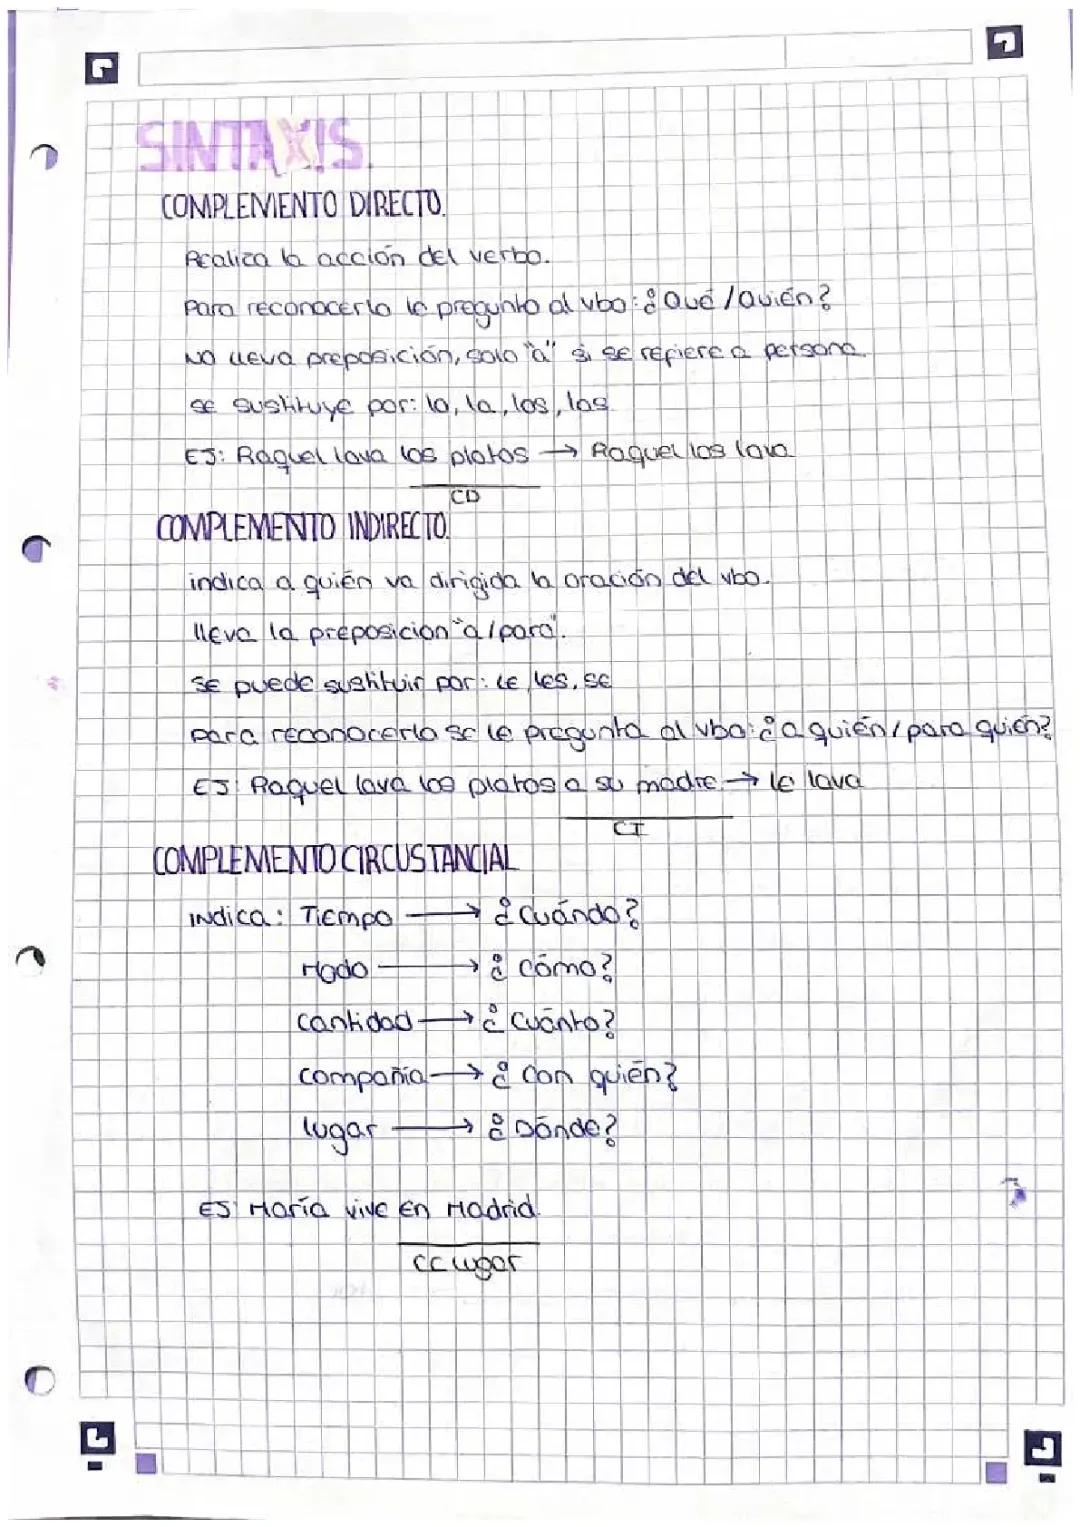 SINTAXIS.
COMPLEMENTO DIRECTO.
Realiza la acción del verbo.
Para reconocerlo le pregunto al vbo: ¿Qué / Quién?
No lleva preposición, solo "a" si se refiere a persona.
se sustituye por: lo, la, los, las
EJ: Raquel lava los platos → Raquel los lava.
CD
COMPLEMENTO INDIRECTO.
indica a quién va dirigida la oración del vbo.
lleva la preposicion "a / para".
se puede sustituir por: le, les, se
para reconocerlo se le pregunta al vbo: ¿a quién / para quién?
EJ: Raquel lava los platos a su madre. → le lava
CI
COMPLEMENTO CIRCUSTANCIAL
indica: Tiempo → ¿Cuándo?
Modo → ¿Cómo?
cantidad → ¿Cuánto?
compañía → ¿Con quién?
lugar → ¿Dónde?
EJ: María vive en Madrid.
CC lugar